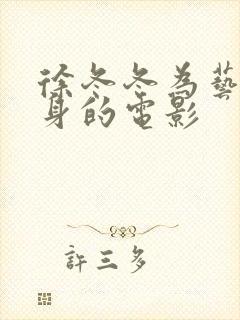 徐冬冬为藝
身的电影
許三多